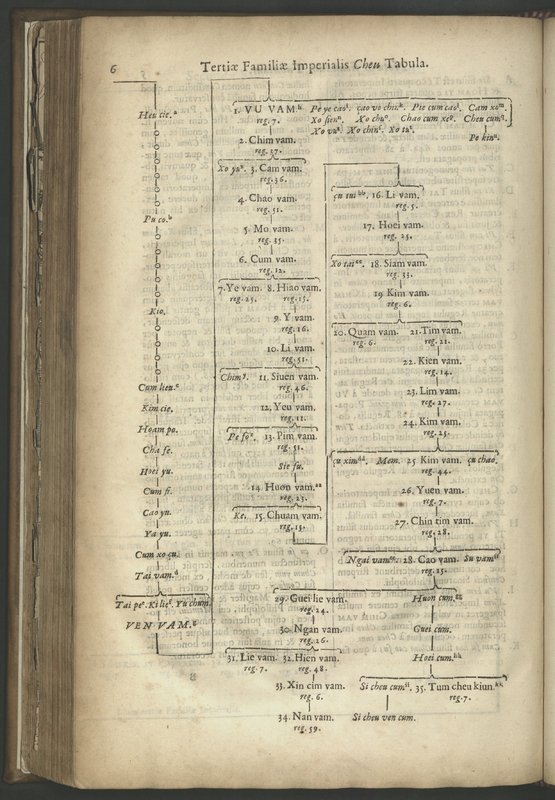 6
Tertiæ Familiæ Imperialis Cheu Tabula.
Heu cie.ª
Pu co.ᵇ
Kio.
Cum lieu.ᶜ
Kim cie.
Hoam po.
Cha fe.
Hoei yu.
Cum fi.
Cao yu.
Ya yu.
Cum xo çu.
Tai vam.ᵈ
Tai peᵉ. Ki lieᶠ. Yu chum.
VEN VAM.ᵍ
1. VU VAMʰ
reg. 7.
Pe ye caoⁱ. cao vo chu.ᵏ Pie cum caoˡ. Cam xoᵐ.
Xo sienⁿ. Xo chuᵒ. Chao cum xeᵒ. Cheu cumᵒ.
Xo vuˢ. Xo chinᵗ. Xo tuᵗ.
Pe kinᵘ.
2. Chim vam.
reg. 37.
Xo yuˣ. 3. Cam vam.
reg. 26.
4. Chao vam.
reg. 51.
5. Mo vam.
reg. 35.
6. Cum vam.
reg. 12.
7. Ye vam. 8. Hiao vam.
reg. 25. reg. 15.
9. Y vam.
reg. 16.
10. Li vam.
reg. 51.
Chimʸ. 11. Siuen vam.
reg. 46.
12. Yeu vam.
reg. 11.
Pe foᶻ. 13. Pim vam.
reg. 51.
Sie fu.
14. Huon vam.ªª
reg. 23.
Ke. 15. Chuam vam.
reg. 15.
çu tuiᵇᵇ. 16. Li vam.
reg. 5.
17. Hoei vam.
reg. 25.
Xo taiᶜᶜ. 18. Siam vam.
reg. 33.
19 Kim vam.
reg. 6.
20. Quam vam. 21. Tim vam.
reg. 6. reg. 21.
22. Kien vam.
reg. 14.
23. Lim vam.
reg. 27.
24. Kim vam.
reg. 25.
çu ximᵈᵈ. Mem. 25. Kim vam. çu chao.
reg. 44.
26. Yuen vam.
reg. 7.
27. Chin tim vam.
reg. 28.
Ngai vamᵉᵉ. 28. Cao vam. Su vamᶠᶠ
reg. 15.
29. Guei lie vam. Huon cum.ᵍᵍ
reg. 24.
30. Ngan vam. Guei cum.
reg. 26.
31. Lie vam. 32. Hien vam. Hoei cum.ʰʰ
reg. 7. reg. 48.
33. Xin cim vam. Si cheu cumⁱⁱ. 35. Tum cheu kiun.ᵏᵏ
reg. 6. reg. 7.
34. Nan vam. Si cheu ven cum.
reg. 59.